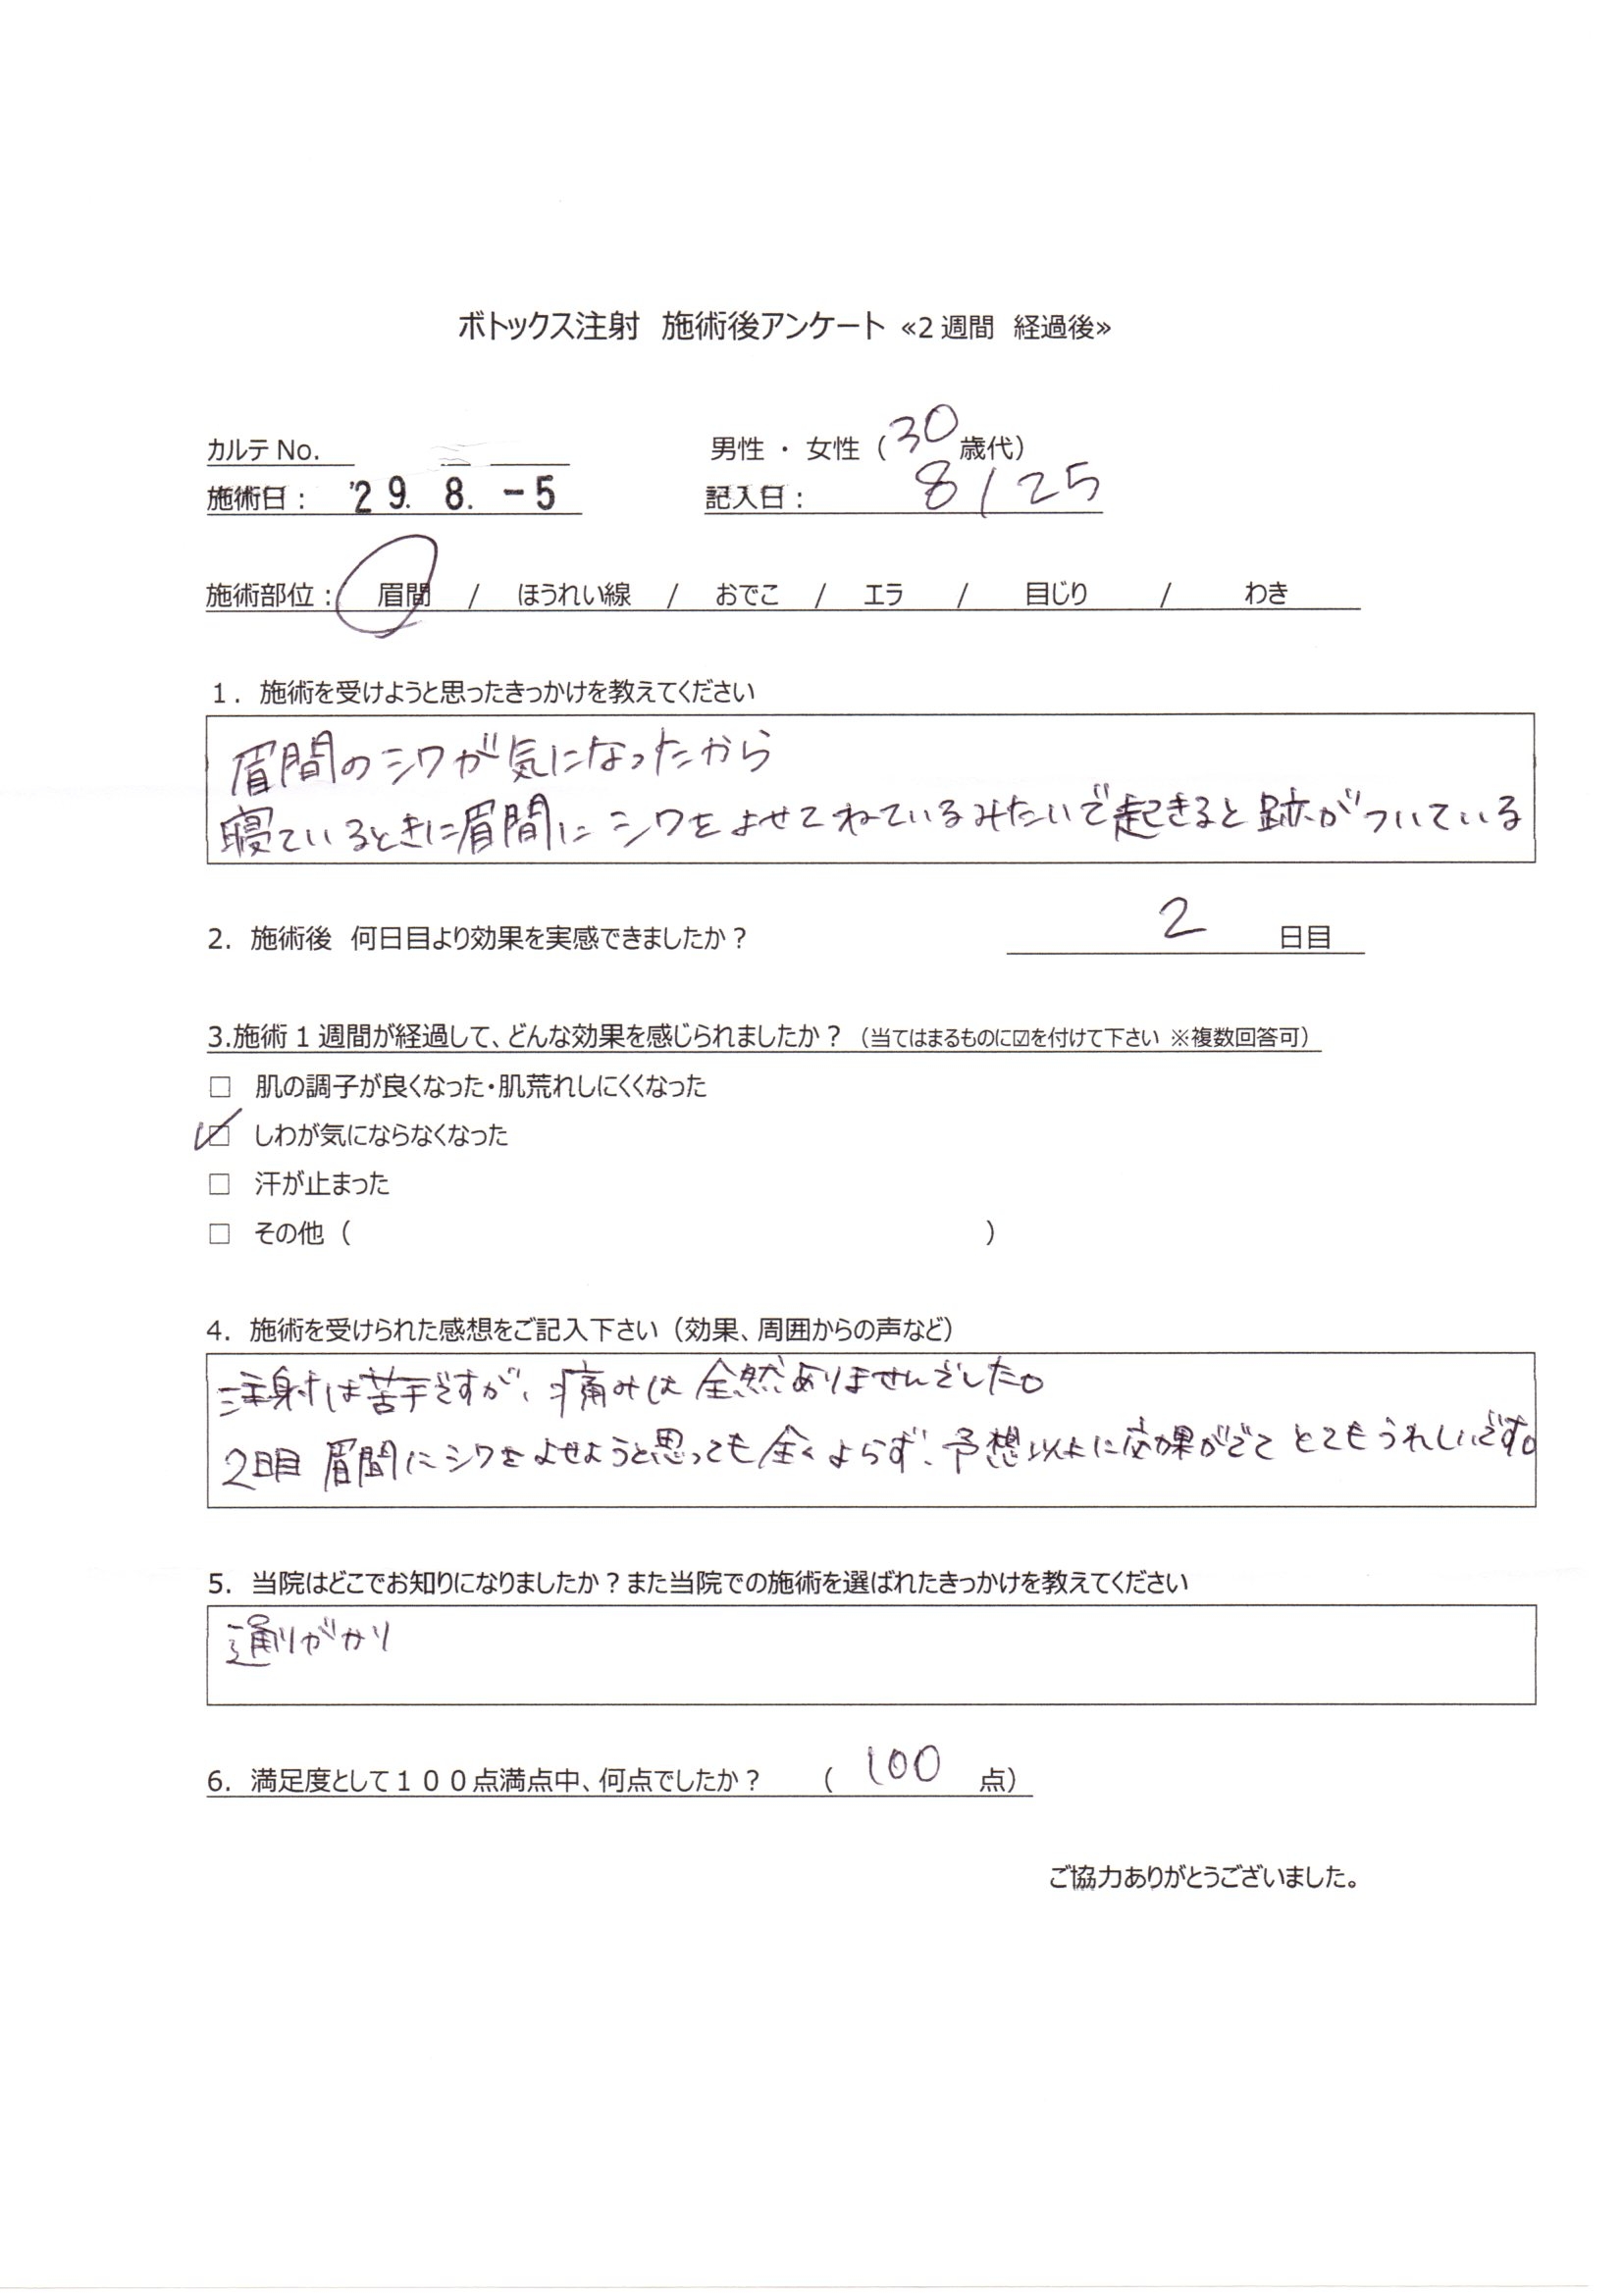 ボトックス注射　施術後アンケート ≪2 週間　経過後≫
カルテ No.
男性 ・ 女性（ 30 歳代）
施術日： '29. 8. -5
記入日： 8/25
施術部位： 眉間 / ほうれい線 / おでこ / エラ / 目じり / わき
1. 施術を受けようと思ったきっかけを教えてください
眉間のシワが気になったから
寝ているときに眉間にシワをよせてねているみたいで起きると跡がついている
2. 施術後　何日目より効果を実感できましたか？ 2 日目
3.施術 1 週間が経過して、どんな効果を感じられましたか？（当てはまるものに☑を付けて下さい ※複数回答可）
□ 肌の調子が良くなった・肌荒れしにくくなった
☑ しわが気にならなくなった
□ 汗が止まった
□ その他（　　　）
4. 施術を受けられた感想をご記入下さい（効果、周囲からの声など）
注射は苦手ですが、痛みは全然ありませんでした。
2日目 眉間にシワをよせようと思っても全くよらず、予想以上に効果がでてとてもうれしいです。
5. 当院はどこでお知りになりましたか？また当院での施術を選ばれたきっかけを教えてください
通りがかり
6. 満足度として１００点満点中、何点でしたか？ （ 100 点）
ご協力ありがとうございました。